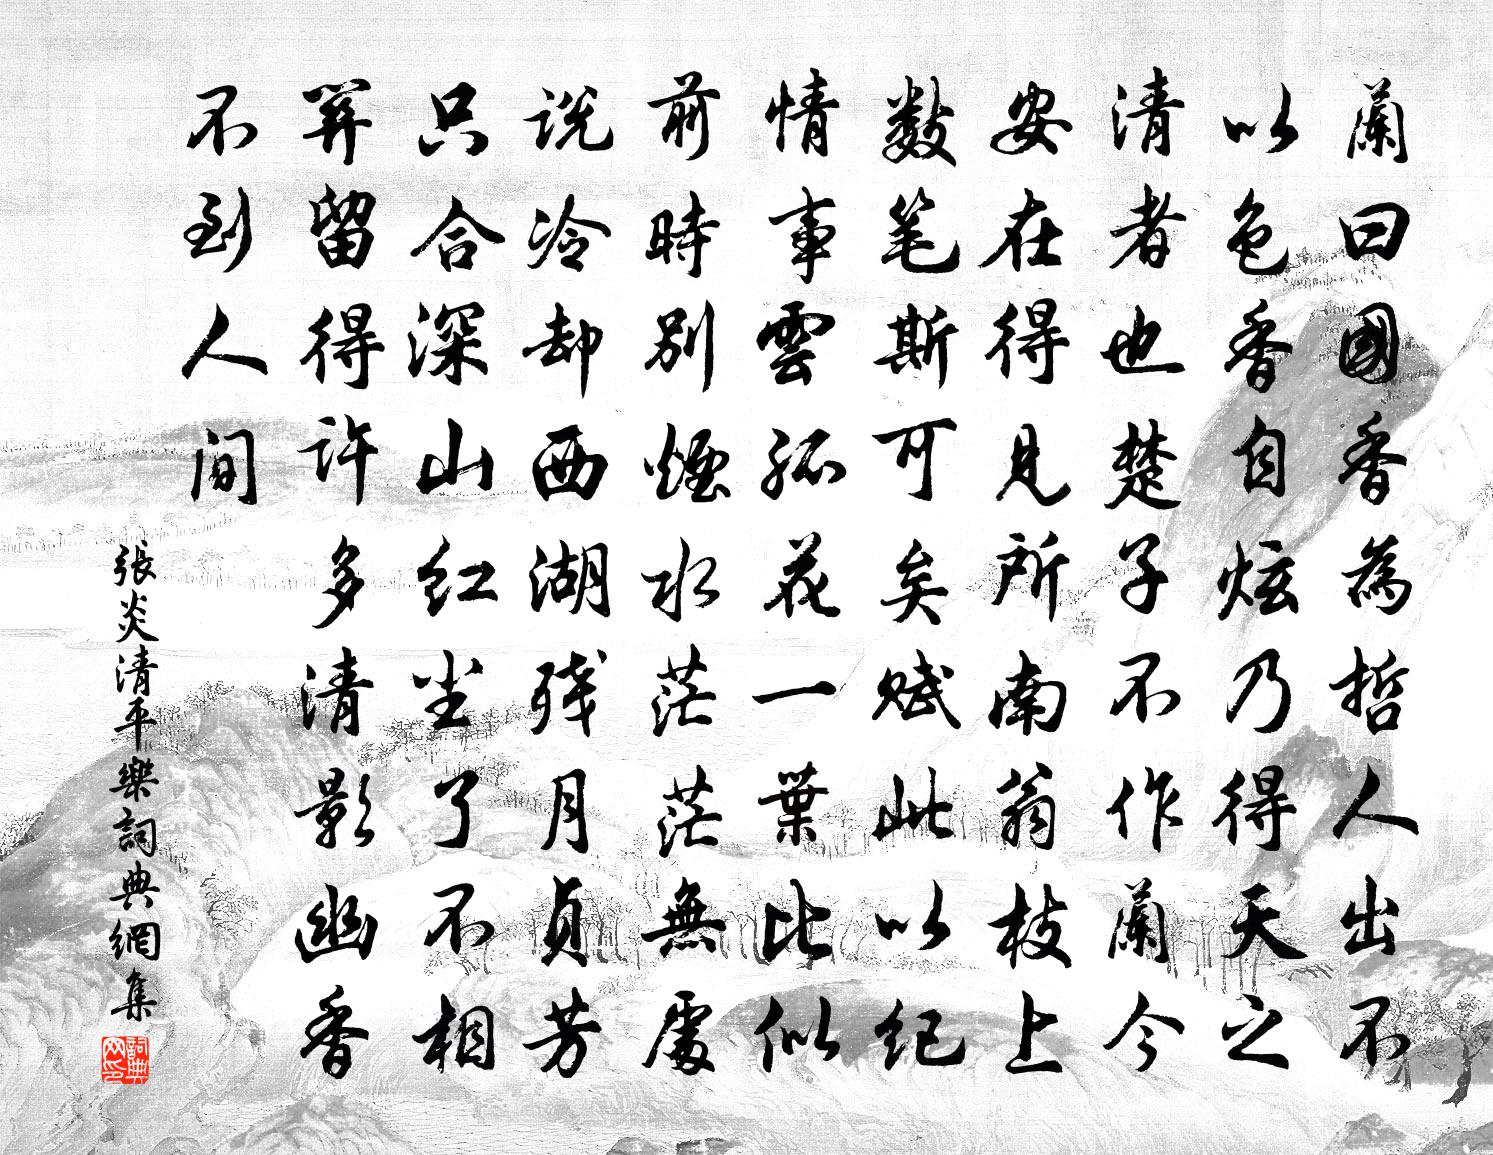 蘭曰國香為哲人出不
以色香自炫乃得天之
清者也楚子不作蘭今
安在得見所南翁枝上
數笔斯可矣賦此以紀
情事雲孤花一葉比似
前時別煙水茫茫無處
說冷却西湖残月貞芳
只合深山红尘了不相
關留得許多清影幽香
不到人間
張炎清平樂詞典網集
詞典网印